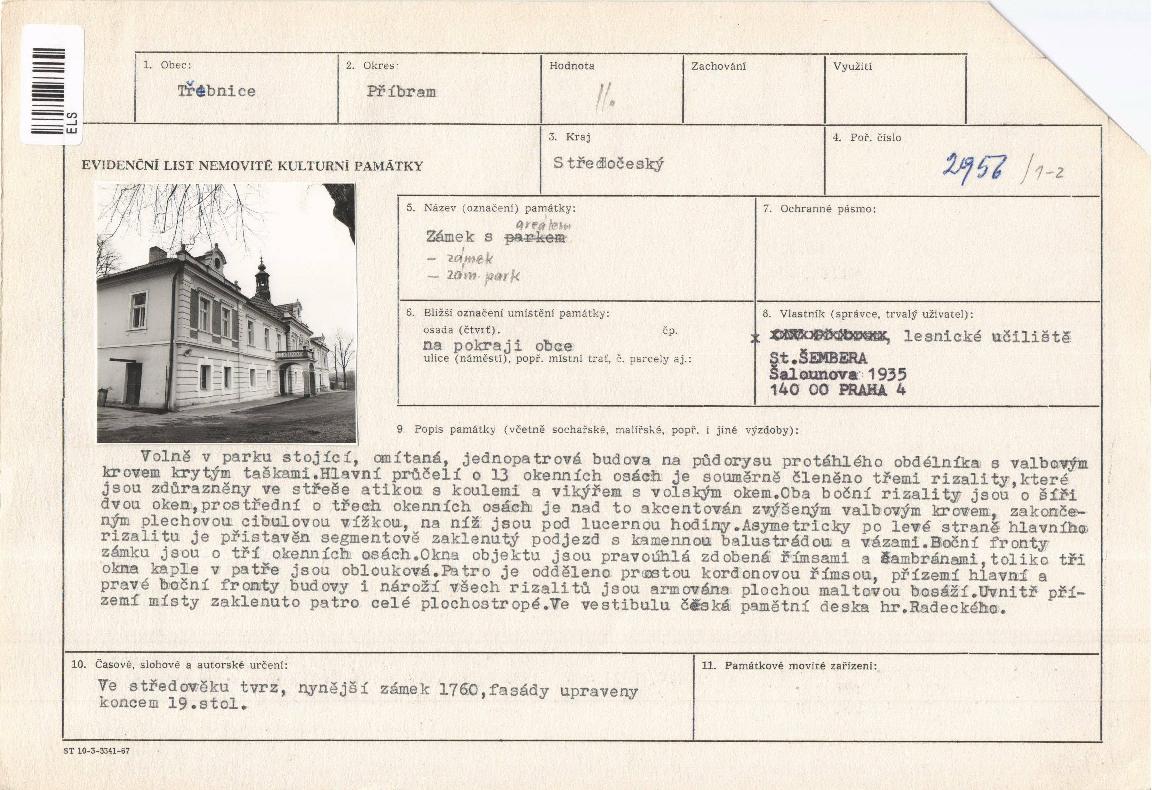 1. Obec:
Třebnice
2. Okres:
Příbram
Hodnota
II.
Zachování
Využití
ELS
EVIDENČNÍ LIST NEMOVITÉ KULTURNÍ PAMÁTKY
3. Kraj
Středočeský
4. Poř. číslo
2956 /1-2
5. Název (označení) památky:
areálem
Zámek s parkem
- zámek
- zám. park
7. Ochranné pásmo:
6. Bližší označení umístění památky:
osada (čtvrť). čp.
na pokraji obce
ulice (náměstí), popř. místní trať, č. parcely aj.:
8. Vlastník (správce, trvalý uživatel):
x , lesnické učiliště
St.ŠEMBERA
Šalounova 1935
140 00 PRAHA 4
9. Popis památky (včetně sochařské, malířské, popř. i jiné výzdoby):
Volně v parku stojící, omítaná, jednopatrová budova na půdorysu protáhlého obdélníka s valbovým
krovem krytým taškami.Hlavní průčelí o 13 okenních osách je souměrně členěno třemi rizality,které
jsou zdůrazněny ve střeše atikou s koulemi a vikýřem s volským okem.Oba boční rizality jsou o šíři
dvou oken,prostřední o třech okenních osách je nad to akcentován zvýšeným valbovým krovem, zakonče-
ným plechovou cibulovou vížkou, na níž jsou pod lucernou hodiny.Asymetricky po levé straně hlavního
rizalitu je přistavěn segmentově zaklenutý podjezd s kamennou balustrádou a vázami.Boční fronty
zámku jsou o tří okenních osách.Okna objektu jsou pravoúhlá zdobená římsami a šambránami,toliko tři
okna kaple v patře jsou oblouková.Patro je odděleno prostou kordonovou římsou, přízemí hlavní a
pravé boční fronty budovy i nároží všech rizalitů jsou armována plochou maltovou bosáží.Uvnitř pří-
zemí místy zaklenuto patro celé plochostropé.Ve vestibulu česká pamětní deska hr.Radeckého.
10. Časové, slohové a autorské určení:
Ve středověku tvrz, nynější zámek 1760,fasády upraveny
koncem 19.stol.
11. Památkové movité zařízení:
ST 10-3-3341-67